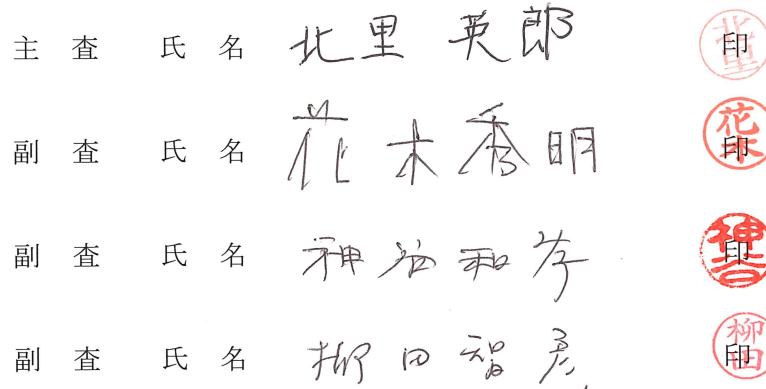 主査 氏名 北里 英郎 印
副査 氏名 花木秀明 印
副査 氏名 神谷和孝 印
副査 氏名 柳田智彦 印